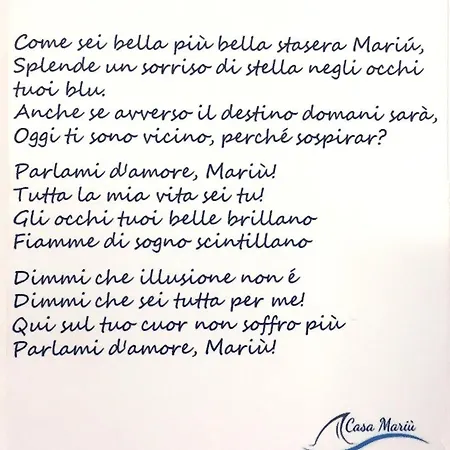 Come sei bella più bella stasera Mariú,
Splende un sorriso di stella negli occhi
tuoi blu.
Anche se avverso il destino domani sarà,
Oggi ti sono vicino, perché sospirar?
Parlami d'amore, Mariù!
Tutta la mia vita sei tu!
Gli occhi tuoi belle brillano
Fiamme di sogno scintillano
Dimmi che illusione non é
Dimmi che sei tutta per me!
Qui sul tuo cuor non soffro più
Parlami d'amore, Mariù!
Casa Mariù